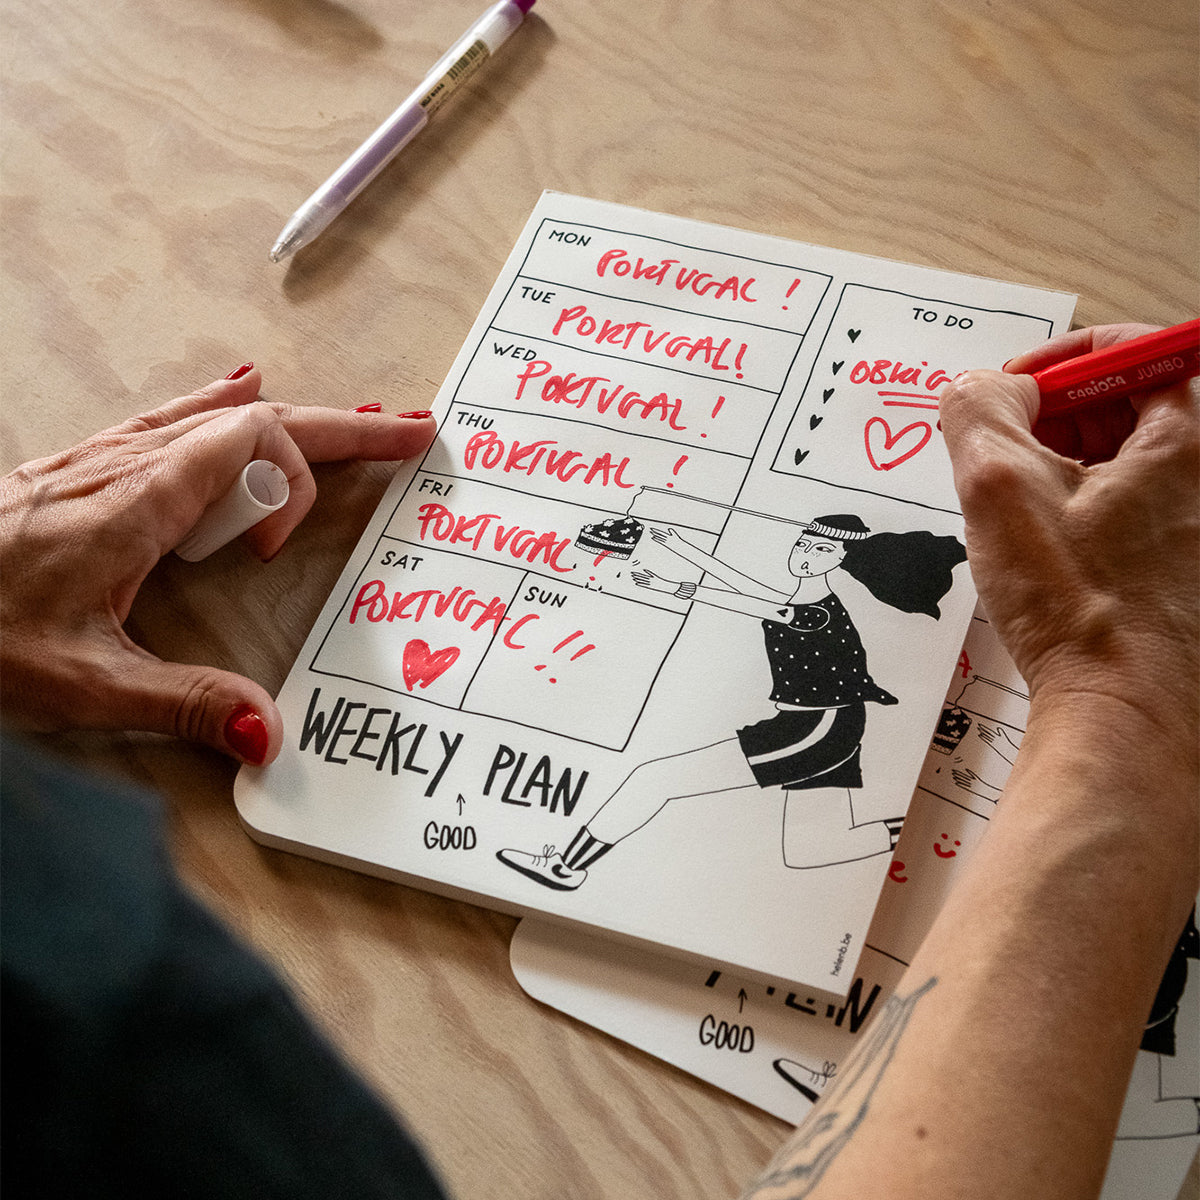 MON
PORTUGAL !
TUE
PORTUGAL!
WED
PORTUGAL !
THU
PORTUGAL !
FRI
PORTUGAL !
SAT
SUN
PORTUGAL !!
TO DO
WEEKLY PLAN
GOOD
helenb.be
CARIOCA JUMBO
GOOD